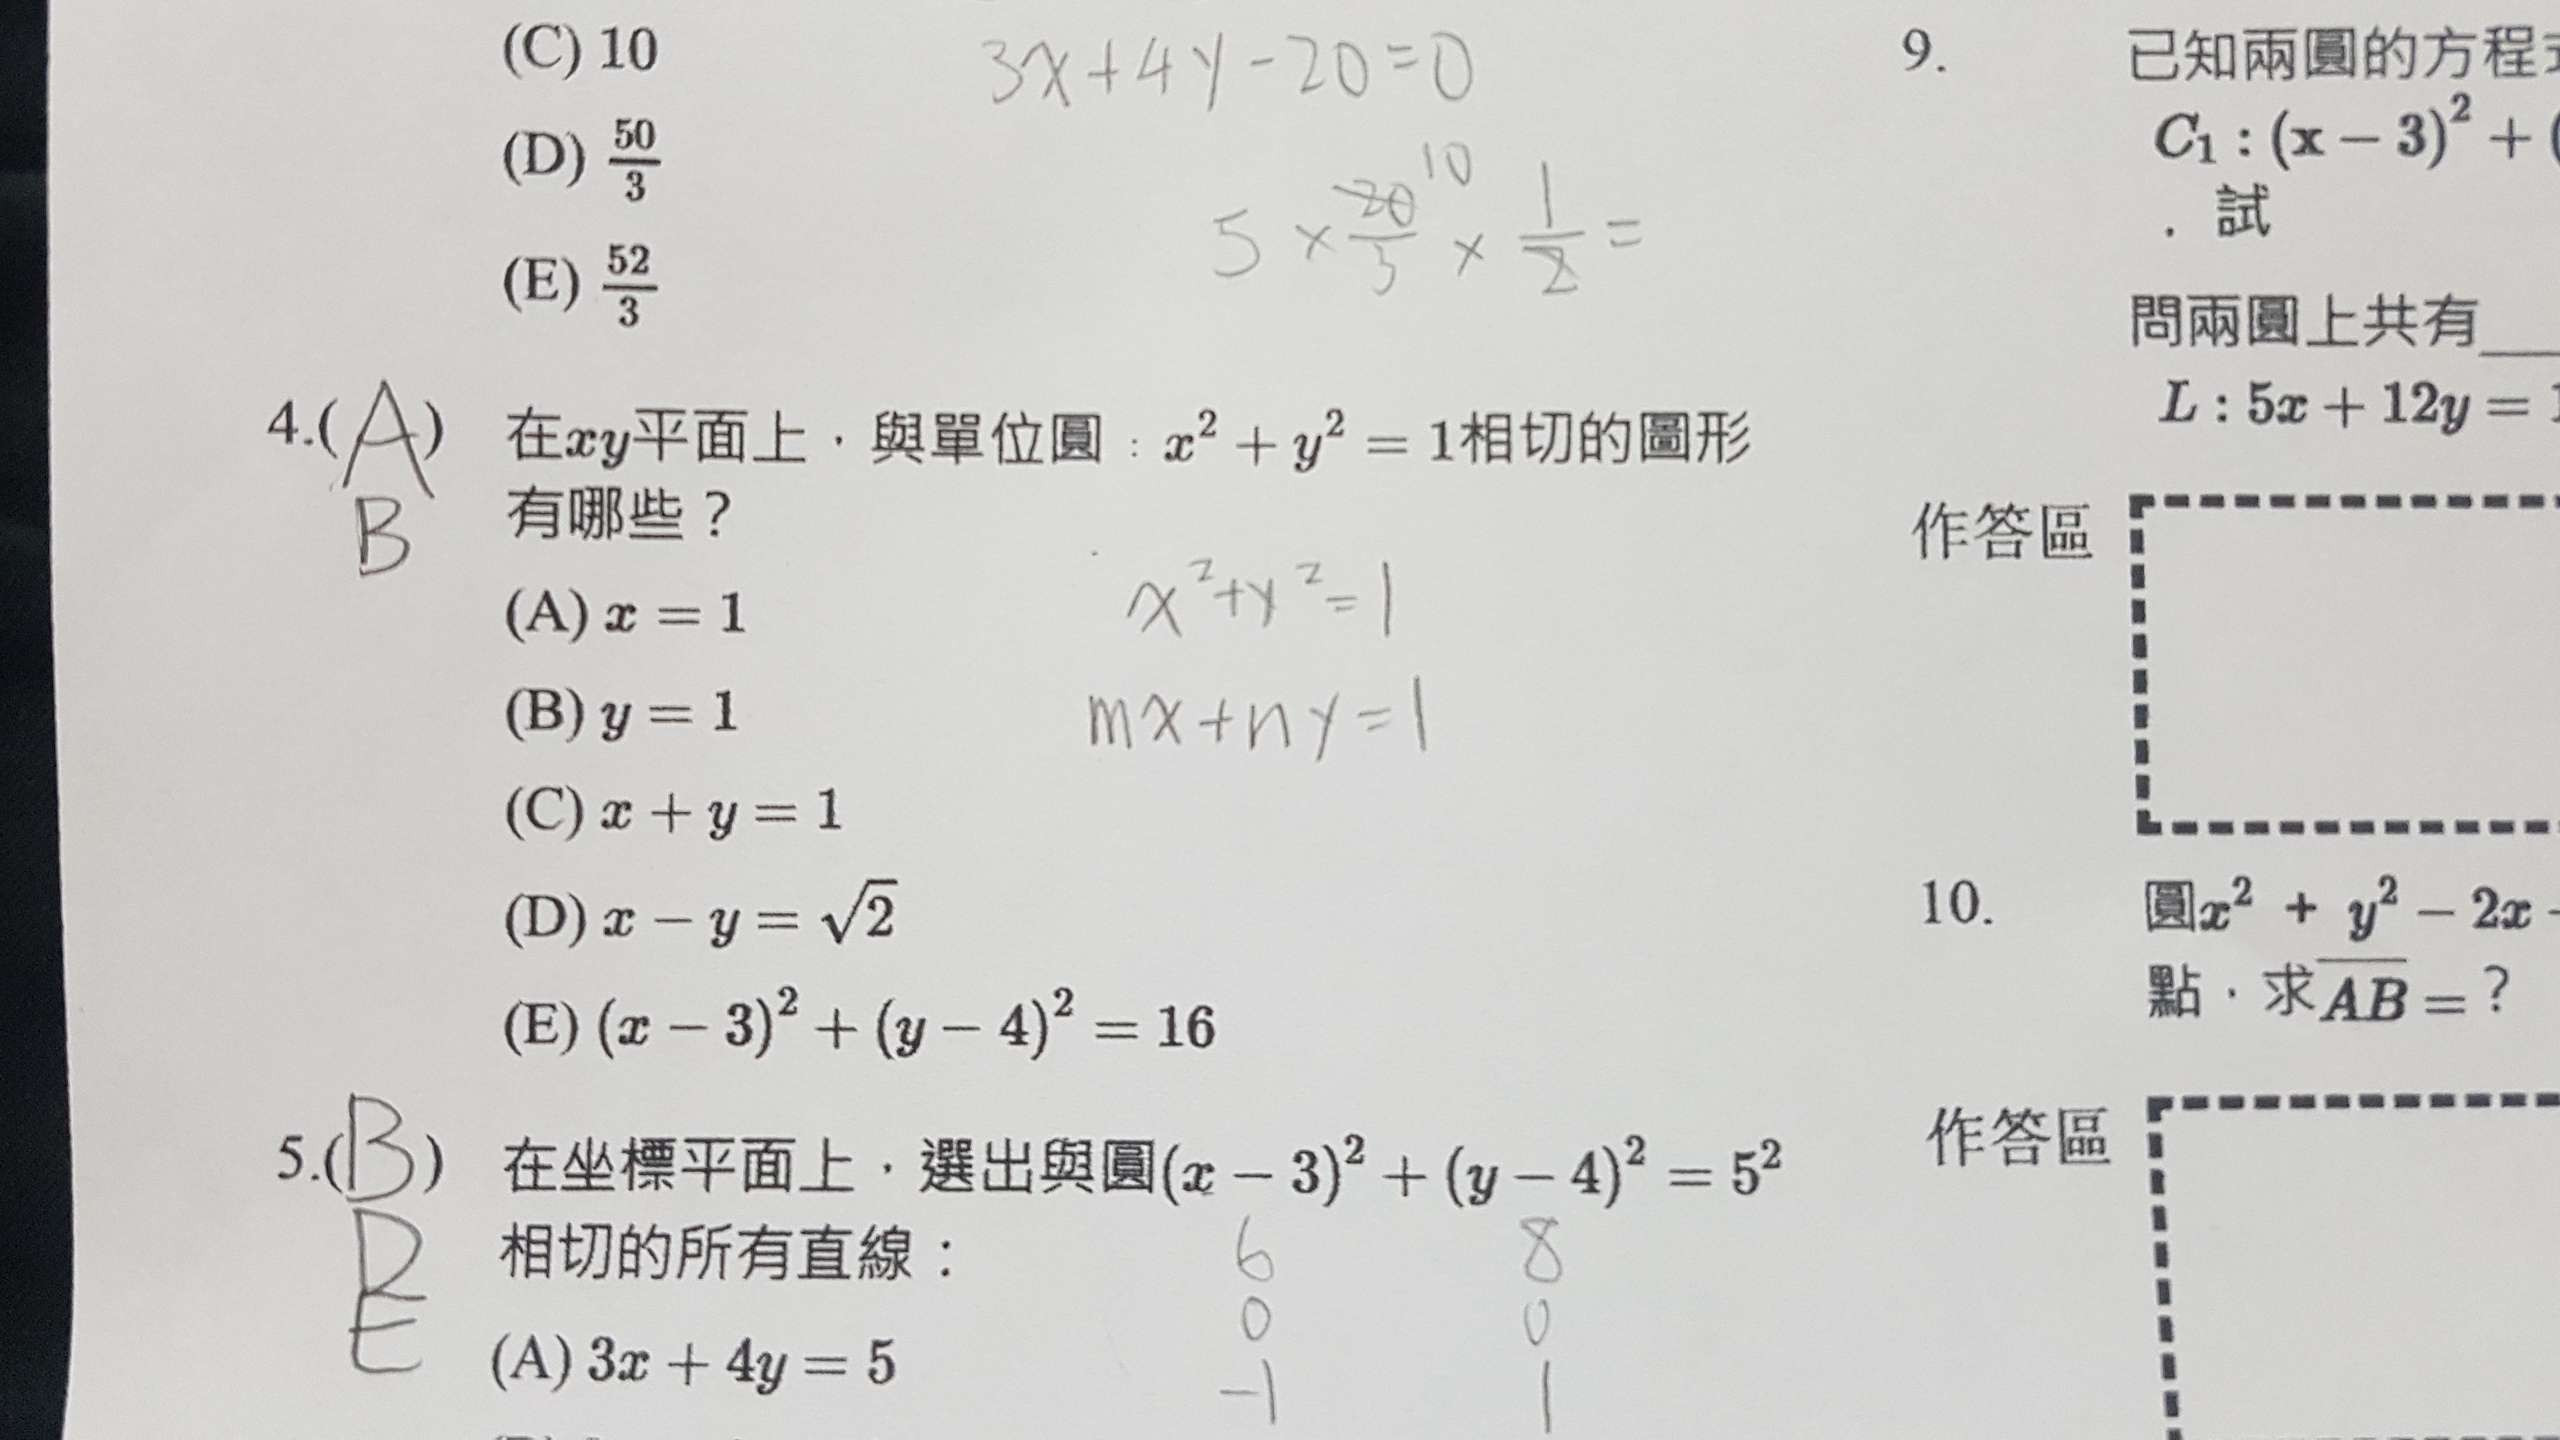 (C) 10
3x+4y-20=0
(D) 50/3
5 × 20/5 10 × 1/2 =
(E) 52/3
4.(A) 在xy平面上，與單位圓：x² + y² = 1相切的圖形
B 有哪些？
(A) x = 1
x²+y²=1
(B) y = 1
mx+ny=1
(C) x + y = 1
(D) x − y = √2
(E) (x − 3)² + (y − 4)² = 16
5.(B) 在坐標平面上，選出與圓(x − 3)² + (y − 4)² = 5²
D 相切的所有直線：
6 8
E
0 0
(A) 3x + 4y = 5
-1 1
9. 已知兩圓的方程
C₁ : (x − 3)² + (
．試
問兩圓上共有
L : 5x + 12y = 1
作答區
10. 圓x² + y² − 2x
點，求AB = ?
作答區